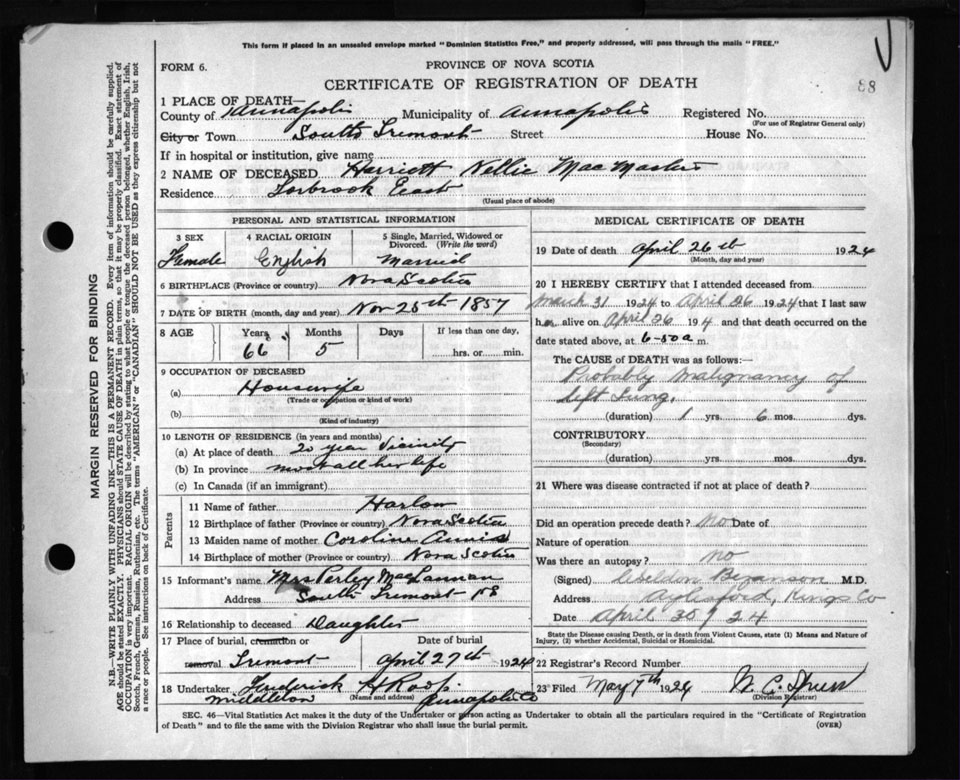 This form if placed in an unsealed envelope marked "Dominion Statistics Free," and properly addressed, will pass through the mails "FREE."
FORM 6.
PROVINCE OF NOVA SCOTIA
CERTIFICATE OF REGISTRATION OF DEATH
88
1 PLACE OF DEATH—
County of Annapolis Municipality of Annapolis Registered No.
(For use of Registrar General only)
City or Town South Tremont Street House No.
If in hospital or institution, give name
2 NAME OF DECEASED Harriett Nellie MacMaster
Residence Torbrook East
(Usual place of abode)
PERSONAL AND STATISTICAL INFORMATION
3 SEX 4 RACIAL ORIGIN 5 Single, Married, Widowed or Divorced. (Write the word)
Female English Married
6 BIRTHPLACE (Province or country) Nova Scotia
7 DATE OF BIRTH (month, day and year) Nov 25th 1857
8 AGE Years Months Days If less than one day,
66 5 hrs. or min.
9 OCCUPATION OF DECEASED
(a) Housewife
(Trade or occupation or kind of work)
(b)
(Kind of industry)
10 LENGTH OF RESIDENCE (in years and months)
(a) At place of death 20 year vicinity
(b) In province most all her life
(c) In Canada (if an immigrant)
Parents
11 Name of father Harlow
12 Birthplace of father (Province or country) Nova Scotia
13 Maiden name of mother Coroline Annis
14 Birthplace of mother (Province or country) Nova Scotia
15 Informant's name Mrs Perley MacLannan
Address South Tremont NS
16 Relationship to deceased Daughter
17 Place of burial, cremation or removal Tremont Date of burial April 27th 1924
18 Undertaker Fredrick H Roop
(Name and address)
Middleton Annapolis Co
MEDICAL CERTIFICATE OF DEATH
19 Date of death April 26th 1924
(Month, day and year)
20 I HEREBY CERTIFY that I attended deceased from
March 31 1924 to April 26 1924 that I last saw
her alive on April 26 1914 and that death occurred on the
date stated above, at 6-50 a m.
The CAUSE OF DEATH was as follows:—
Probably Malignancy of
left Lung.
(duration) 1 yrs. 6 mos. dys.
CONTRIBUTORY
(Secondary)
(duration) yrs. mos. dys.
21 Where was disease contracted if not at place of death?
Did an operation precede death? No Date of
Nature of operation
Was there an autopsy? no
(Signed) Weldon Beranson M.D.
Address Aylesford, Kings Co
Date April 30 / 24
State the Disease causing Death, or in death from Violent Causes, state (1) Means and Nature of
Injury, (2) whether Accidental, Suicidal or Homicidal.
22 Registrar's Record Number
23 Filed May 7th 1924 W. C.
(Division Registrar)
SEC. 46—Vital Statistics Act makes it the duty of the Undertaker or person acting as Undertaker to obtain all the particulars required in the "Certificate of Registration
of Death" and to file the same with the Division Registrar who shall issue the burial permit. (OVER)
MARGIN RESERVED FOR BINDING
N.B.—WRITE PLAINLY WITH UNFADING INK—THIS IS A PERMANENT RECORD. Every item of information should be carefully supplied.
AGE should be stated EXACTLY. PHYSICIANS should STATE CAUSE OF DEATH in plain terms, so that it may be properly classified. Exact statement of
OCCUPATION is very important. RACIAL ORIGIN will be described by stating to what people or tongue the deceased person belonged, whether English, Irish,
Scotch, French, German, Russian, Ruthenian, etc. The terms "AMERICAN" or "CANADIAN" SHOULD NOT BE USED as they express citizenship but not
a race or people. See instructions on back of Certificate.